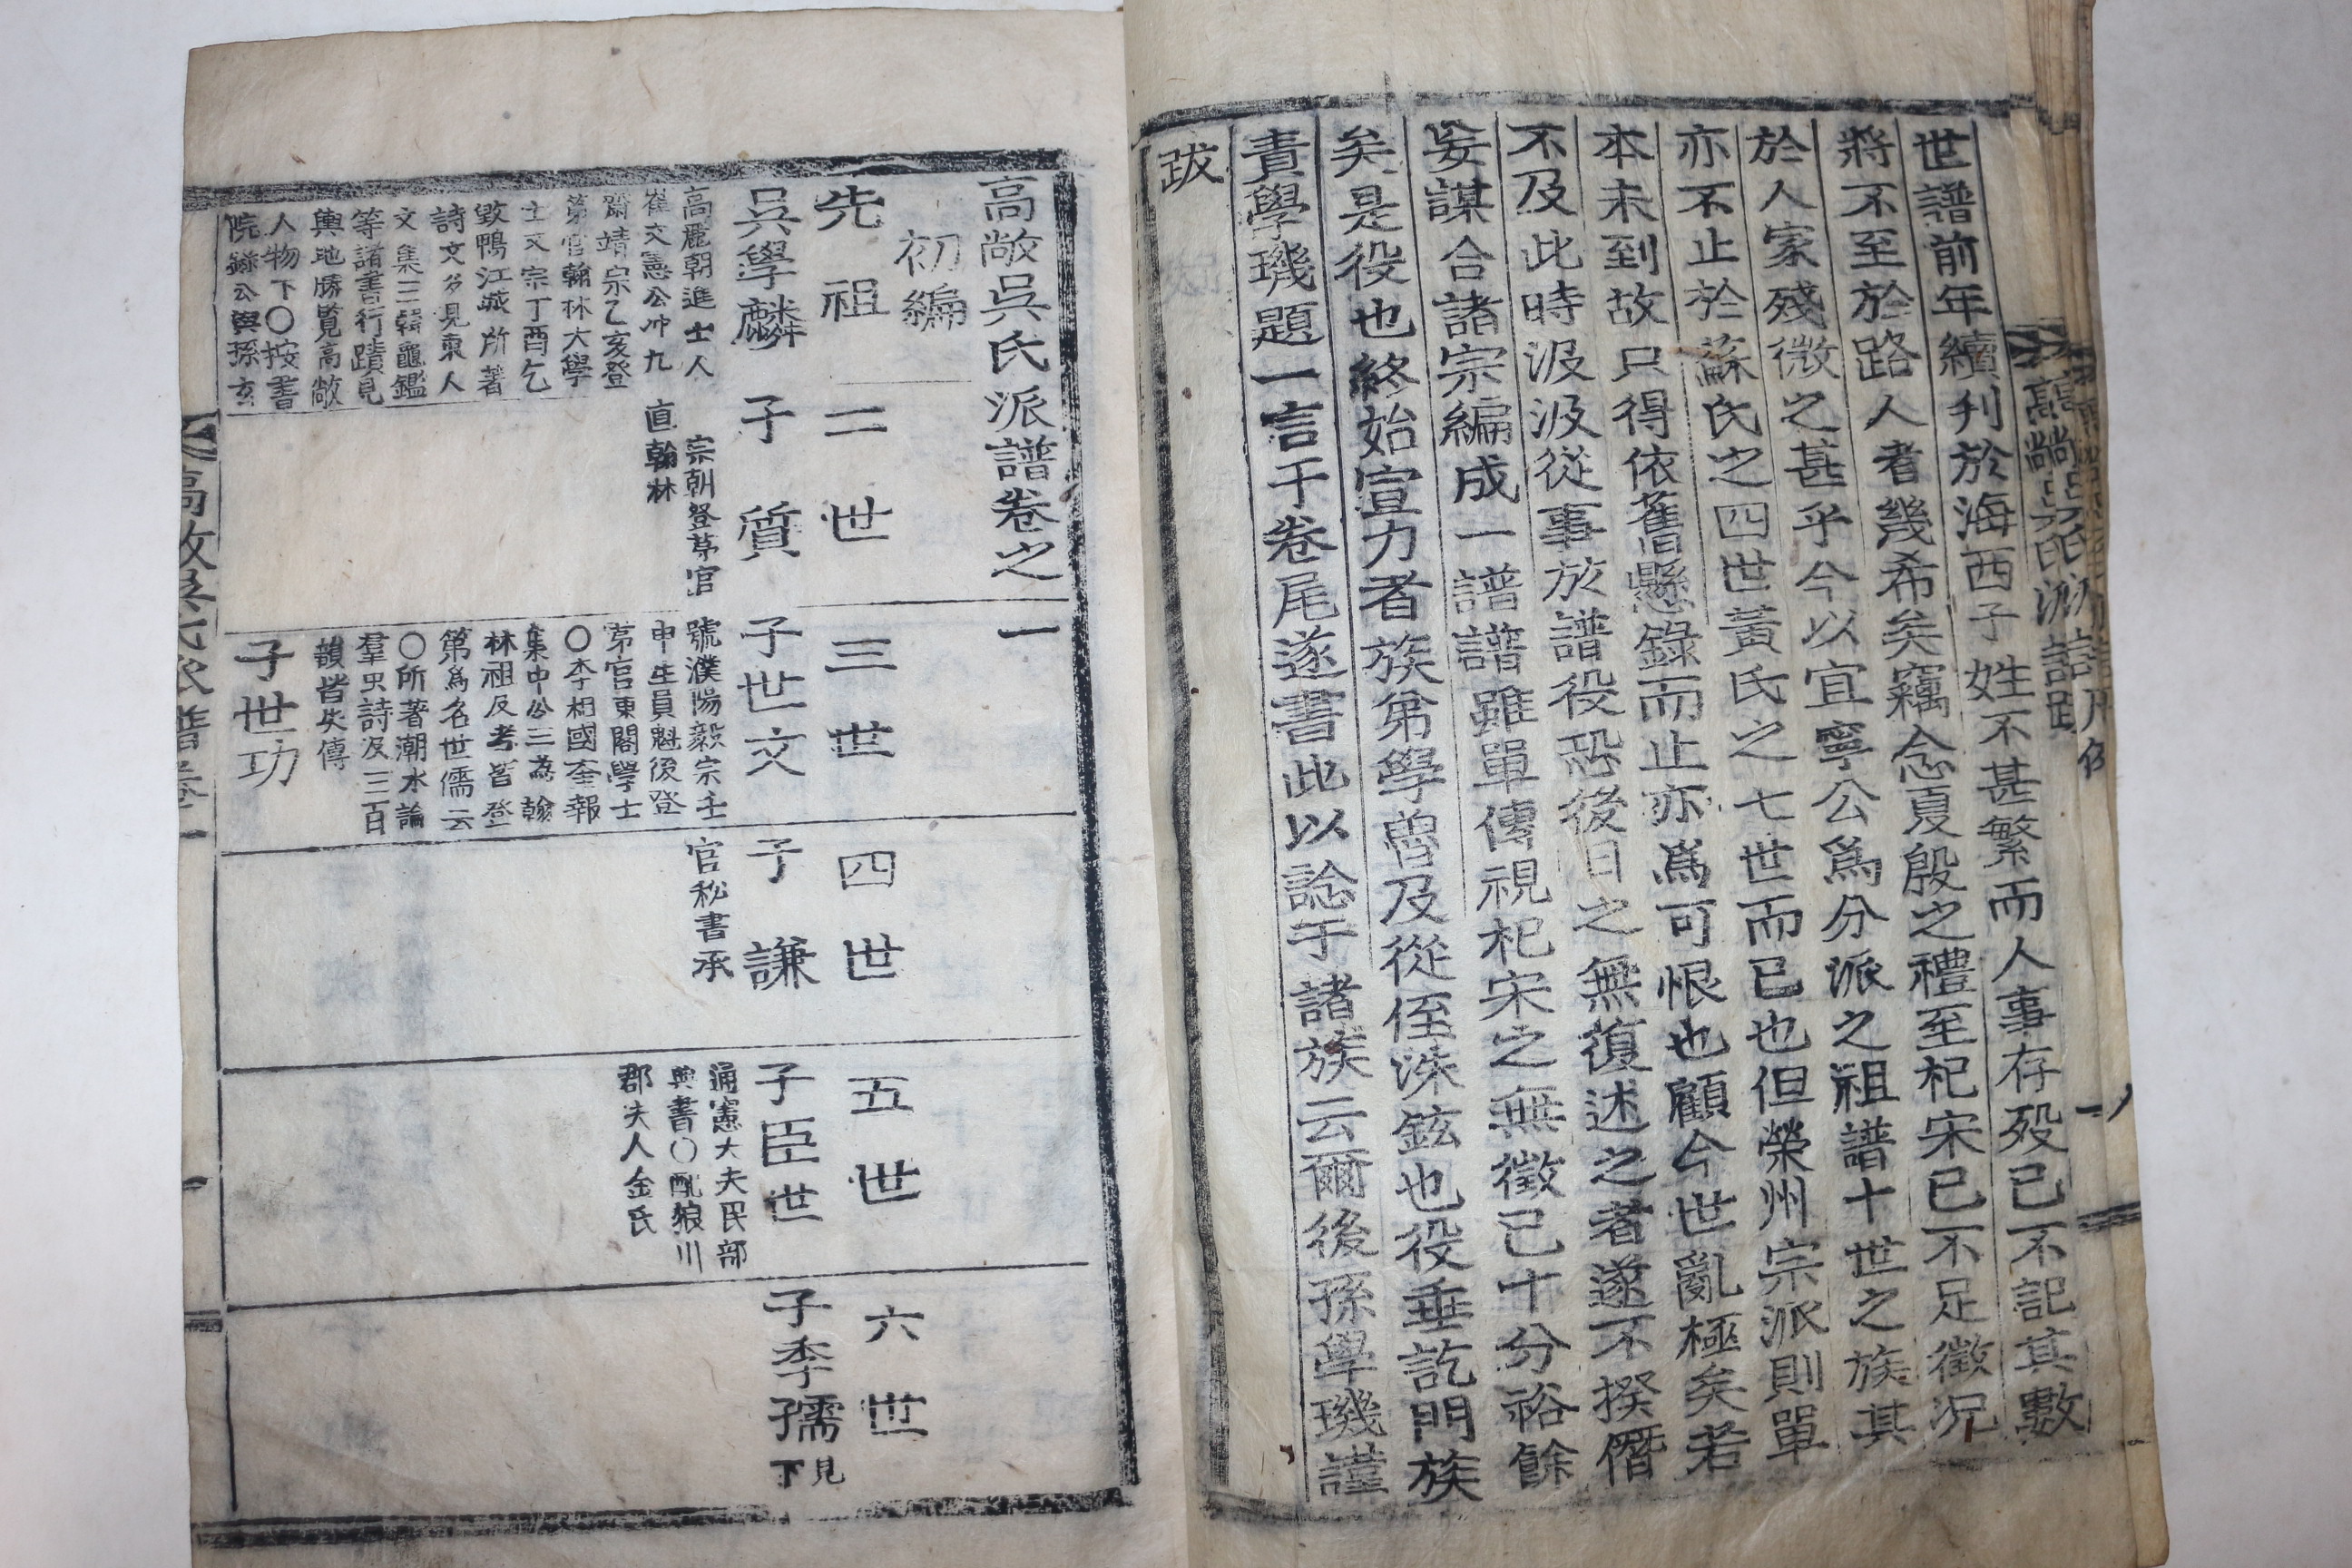 世譜前年續刋於海西子姓不甚繁而人事存殁已不記其數
將不至於路人者幾希矣竊念夏殷之禮至杞宋已不足徵况
於人家殘微之甚乎今以宜寧公爲分派之祖譜十世之族其
亦不止於蘇氏之四世黃氏之七世而已也但榮州宗派則單
本未到故只得依舊懸錄而止亦爲可恨也顧今世亂極矣若
不及此時汲汲從事於譜役恐後日之無復述之者遂不揆僭
妄謀合諸宗編成一譜譜雖單傳視杞宋之無徵已十分裕餘
矣是役也終始宣力者族弟學魯及從侄洙鉉也役垂訖門族
責學璣題一言于卷尾遂書此以諗于諸族云爾後孫學璣謹
跋
高敞吳氏派譜卷之一
初編
先祖 二世 三世 四世 五世 六世
吳學麟 子質 子世文 子謙 子臣世 子季孺 見下
高麗朝進士人
崔文憲公冲九
齋靖宗乙亥登
第官翰林大學
士文宗丁酉乞
毀鴨江城所著
詩文多見東人
文集三韓龜鑑
等諸書行蹟見
輿地勝覽高敞
人物下○按書
院錄公與孫玄
宗朝登第官
直翰林
號濮陽毅宗壬
申生員魁後登
第官東閣學士
○李相國奎報
集中公三為翰
林祖及考皆登
第爲名世儒云
○所著潮水論
羣玉詩及三百
韻皆失傳
子世功
官秘書承
通憲大夫民部
典書○配狼川
郡夫人金氏